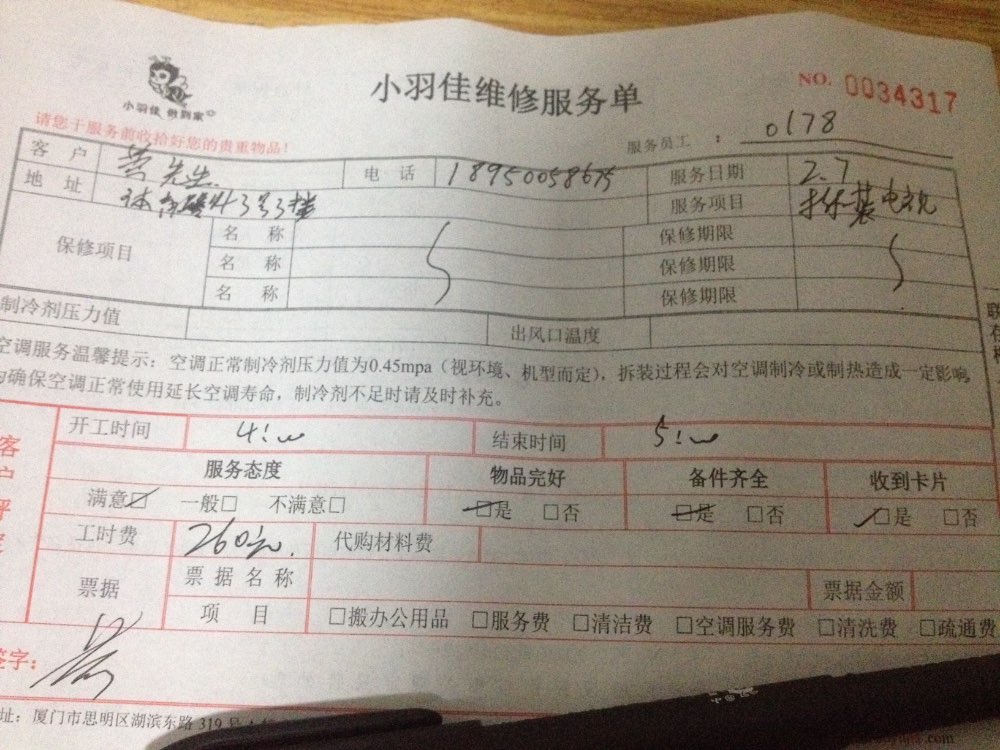 小羽佳 做到家
小羽佳维修服务单
NO. 0034317
请您于服务前收拾好您的贵重物品!
服务员工: 0178
客户 黄先生 电话 18950058675 服务日期 2.7
地址 43号3楼 服务项目 拆装电视
保修项目 名称 保修期限
名称 保修期限
名称 保修期限
制冷剂压力值 出风口温度
空调服务温馨提示: 空调正常制冷剂压力值为0.45mpa(视环境、机型而定),拆装过程会对空调制冷或制热造成一定影响
为确保空调正常使用延长空调寿命,制冷剂不足时请及时补充。
开工时间 4:00 结束时间 5:00
服务态度 物品完好 备件齐全 收到卡片
满意□ 一般□ 不满意□ □是 □否 □是 □否 □是 □否
工时费 260元. 代购材料费
票据 票据名称 票据金额
项目 □搬办公用品 □服务费 □清洁费 □空调服务费 □清洗费 □疏通费
签字: 黄
址: 厦门市思明区湖滨东路319号